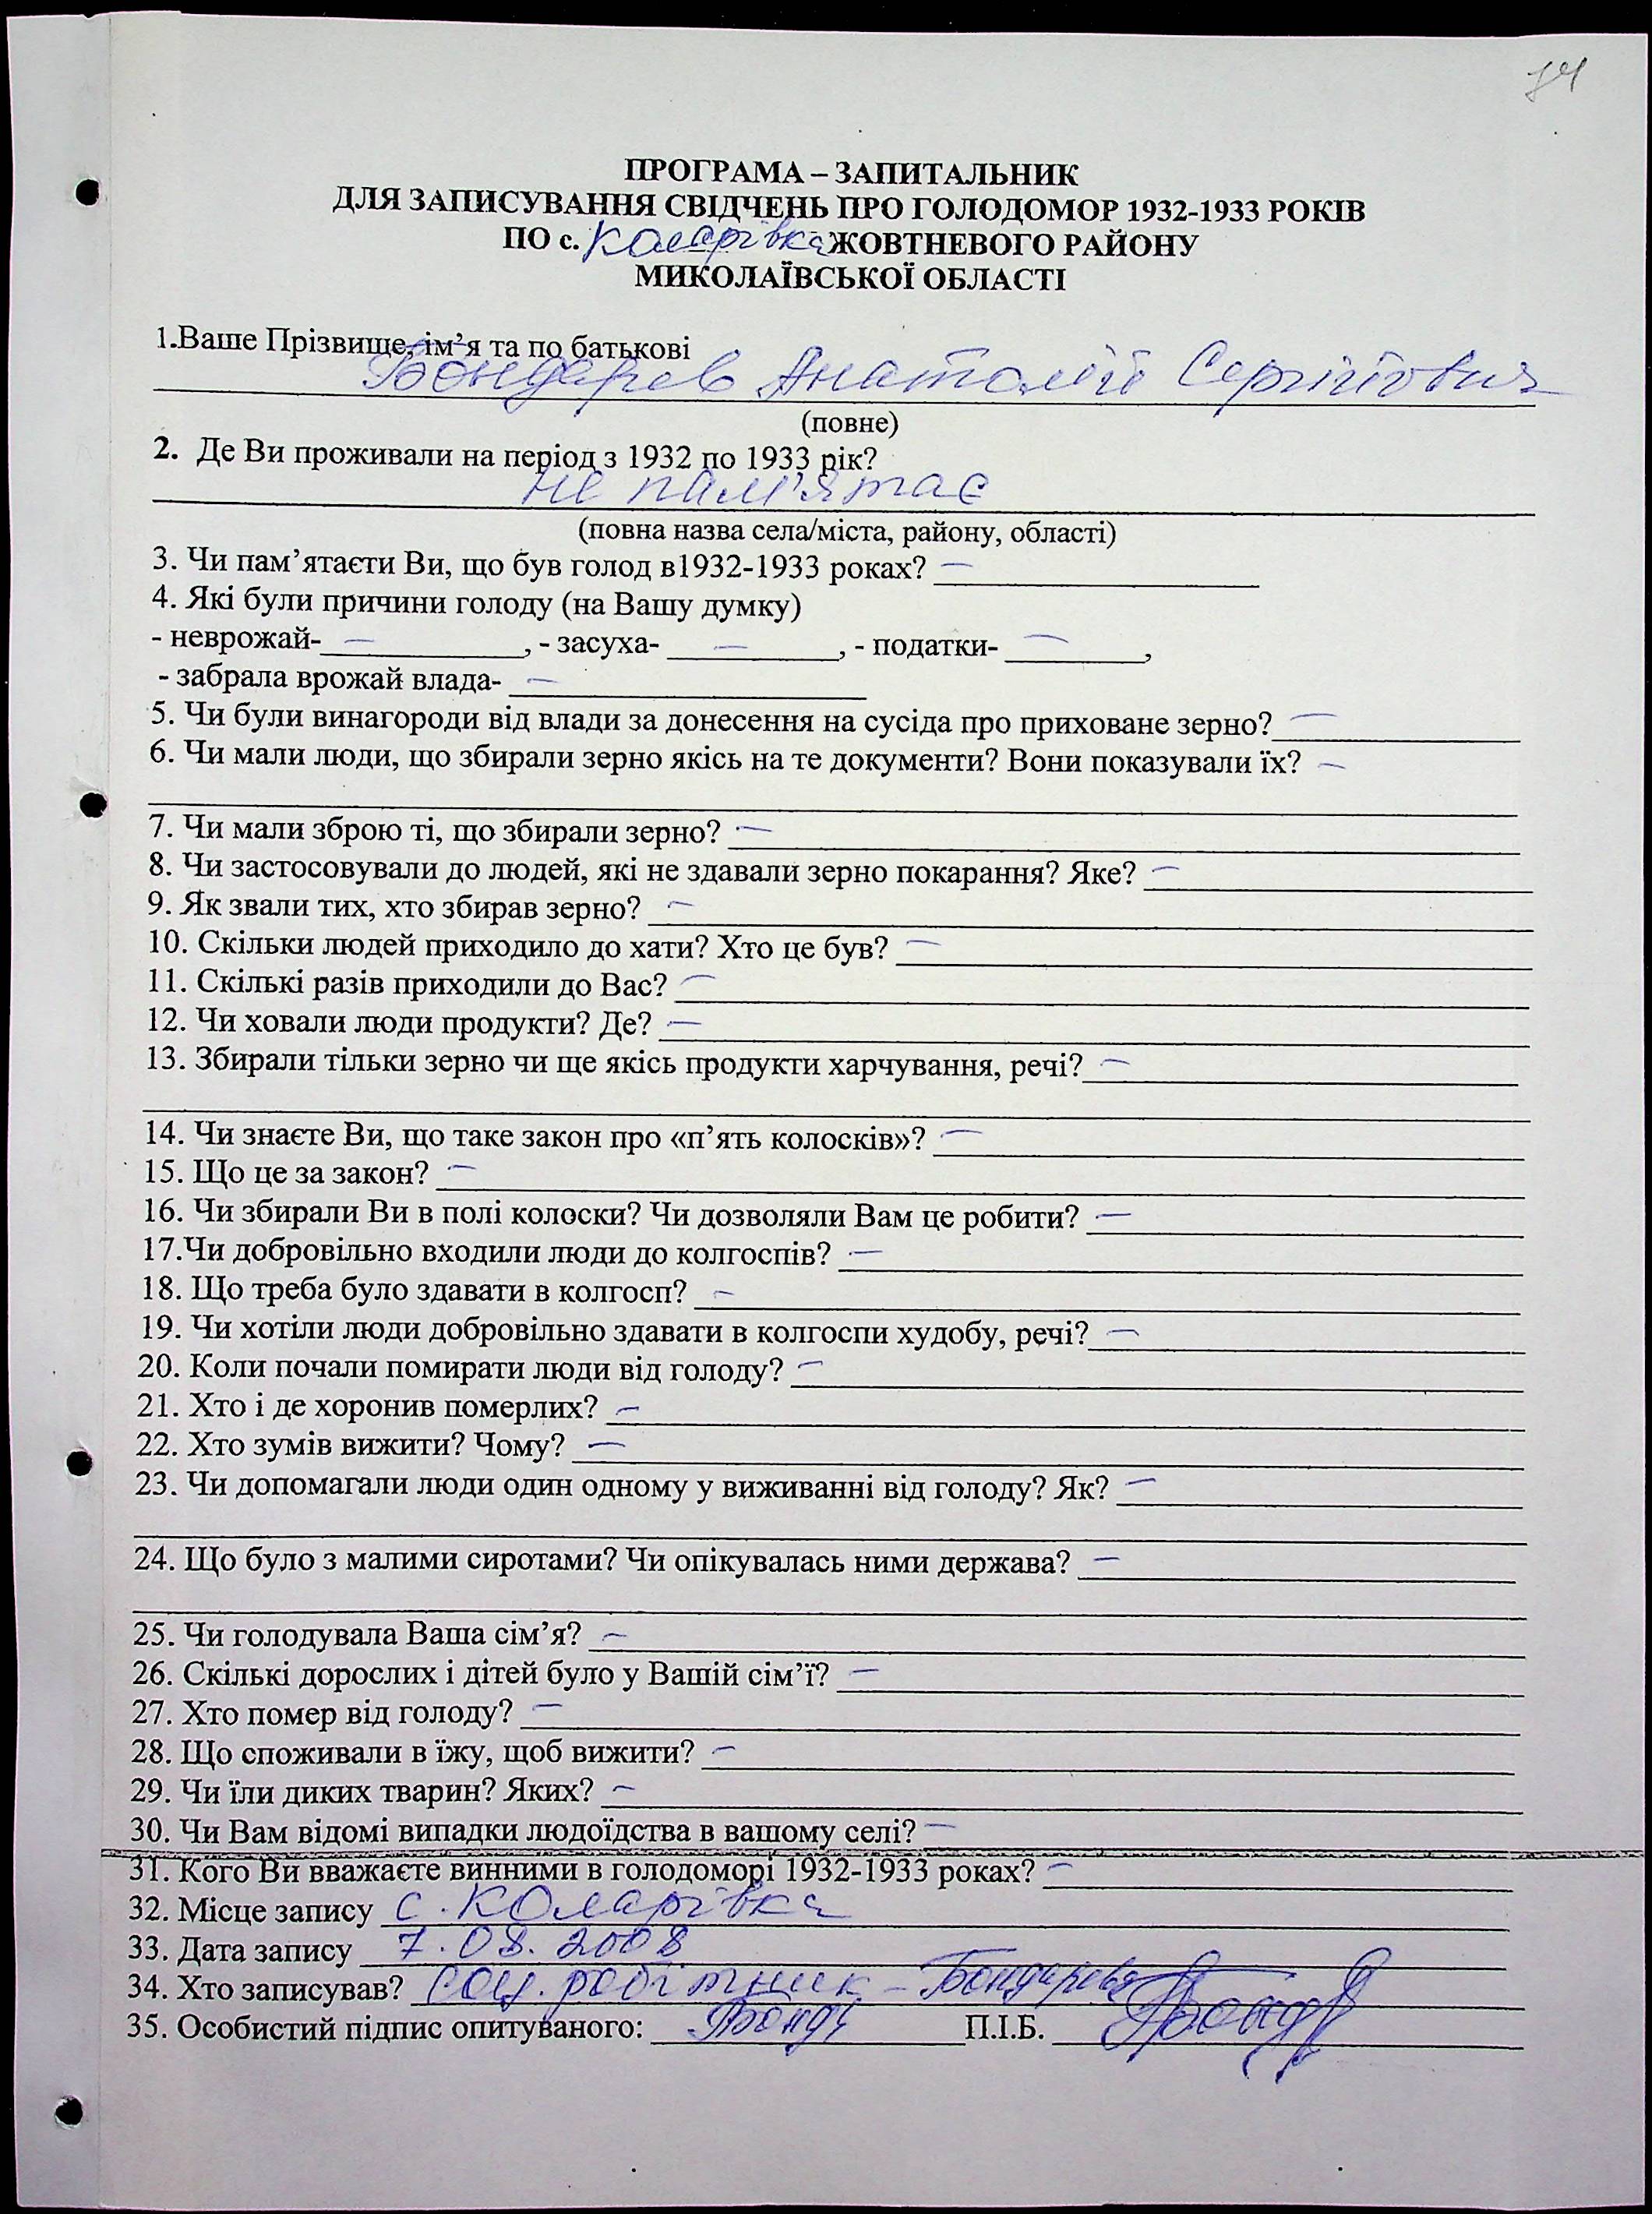 74
ПРОГРАМА – ЗАПИТАЛЬНИК
ДЛЯ ЗАПИСУВАННЯ СВІДЧЕНЬ ПРО ГОЛОДОМОР 1932-1933 РОКІВ
ПО с. Коларівка ЖОВТНЕВОГО РАЙОНУ
МИКОЛАЇВСЬКОЇ ОБЛАСТІ
1.Ваше Прізвище, ім’я та по батькові
Бондарев Анатолій Сергійович
(повне)
2. Де Ви проживали на період з 1932 по 1933 рік?
не пам'ятає
(повна назва села/міста, району, області)
3. Чи пам’ятаєти Ви, що був голод в1932-1933 роках? —
4. Які були причини голоду (на Вашу думку)
- неврожай- — , - засуха- — , - податки- — ,
- забрала врожай влада- —
5. Чи були винагороди від влади за донесення на сусіда про приховане зерно? —
6. Чи мали люди, що збирали зерно якісь на те документи? Вони показували їх? —
7. Чи мали зброю ті, що збирали зерно? —
8. Чи застосовували до людей, які не здавали зерно покарання? Яке? —
9. Як звали тих, хто збирав зерно? —
10. Скільки людей приходило до хати? Хто це був? —
11. Скількі разів приходили до Вас? —
12. Чи ховали люди продукти? Де? —
13. Збирали тільки зерно чи ще якісь продукти харчування, речі? —
14. Чи знаєте Ви, що таке закон про «п’ять колосків»? —
15. Що це за закон? —
16. Чи збирали Ви в полі колоски? Чи дозволяли Вам це робити? —
17.Чи добровільно входили люди до колгоспів? —
18. Що треба було здавати в колгосп? —
19. Чи хотіли люди добровільно здавати в колгоспи худобу, речі? —
20. Коли почали помирати люди від голоду? —
21. Хто і де хоронив померлих? —
22. Хто зумів вижити? Чому? —
23. Чи допомагали люди один одному у виживанні від голоду? Як? —
24. Що було з малими сиротами? Чи опікувалась ними держава? —
25. Чи голодувала Ваша сім’я? —
26. Скількі дорослих і дітей було у Вашій сім’ї? —
27. Хто помер від голоду? —
28. Що споживали в їжу, щоб вижити? —
29. Чи їли диких тварин? Яких? —
30. Чи Вам відомі випадки людоїдства в вашому селі? —
31. Кого Ви вважаєте винними в голодоморі 1932-1933 роках? —
32. Місце запису с. Коларівка
33. Дата запису 7.08.2008
34. Хто записував? соц. робітник – Бондарева
35. Особистий підпис опитуваного: П.І.Б.